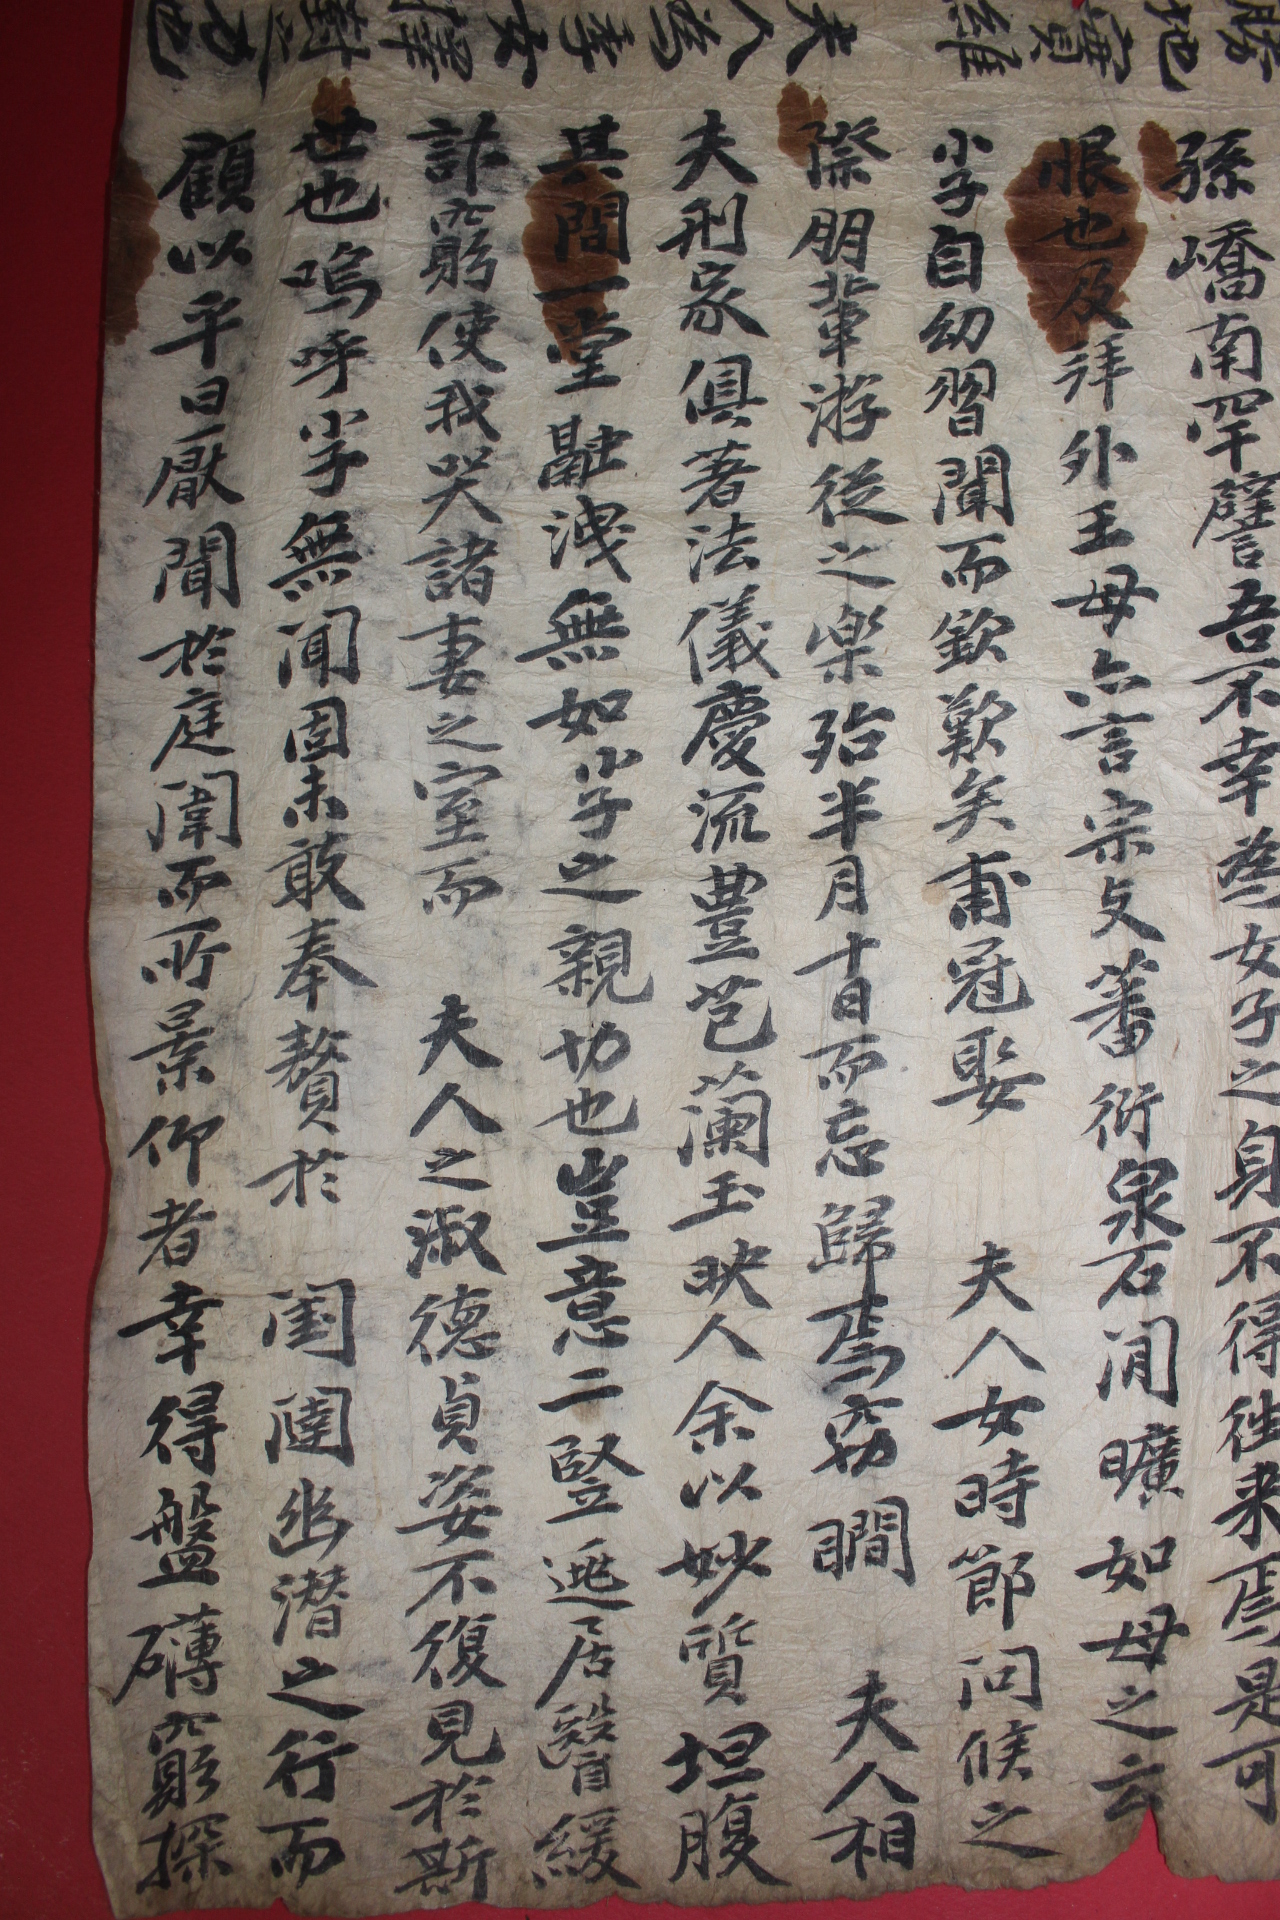 孫嶠南罕譬吾不幸爲女子之身不得徃来焉是可
恨也及拜外王母亦言宗文蕃衍泉石閒曠如母之云
小子自幼習聞而欽歎矣甫冠娶　夫人女時節问候之
際朋輩游從之樂殆半月十日而忘歸焉窃瞯　夫人相
夫刑家俱著法儀慶流豊芑蘭玉映人余以妙質坦腹
其間一堂融洩無如小子之親切也豈意二竪遞居醫緩
計窮使我哭諸妻之室而　夫人之淑德貞姿不復見於斯
世也嗚呼小子無聞固未敢奉贊於　閨闈幽潜之行而
顧以平日厭聞於庭闈而所景仰者幸得盤礴窮探
勝地實維　夫人爲季女擇對之力也